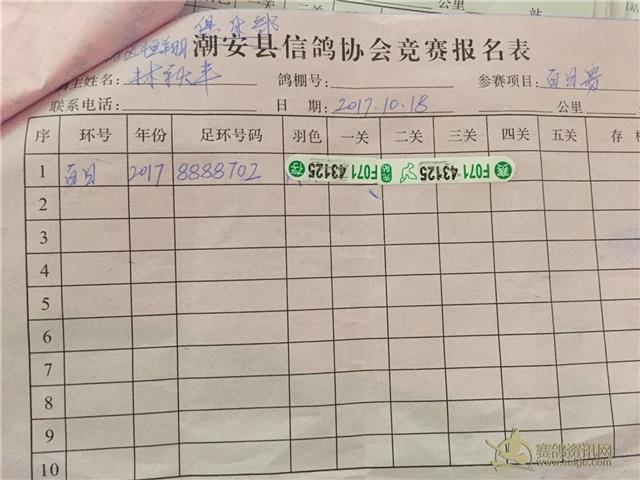 公里 站
俱乐部
恒翔
潮安县信鸽协会竞赛报名表
主姓名： 鸽棚号： 参赛项目：
联系电话： 日 期：2017.10.18 公里
序 环号 年份 足环号码 羽色 一关 二关 三关 四关 五关 存
1 2017 8888702 存 F071 43125 43125 F071 赛
2
3
4
5
6
7
8
9
10
赛鸽资讯网